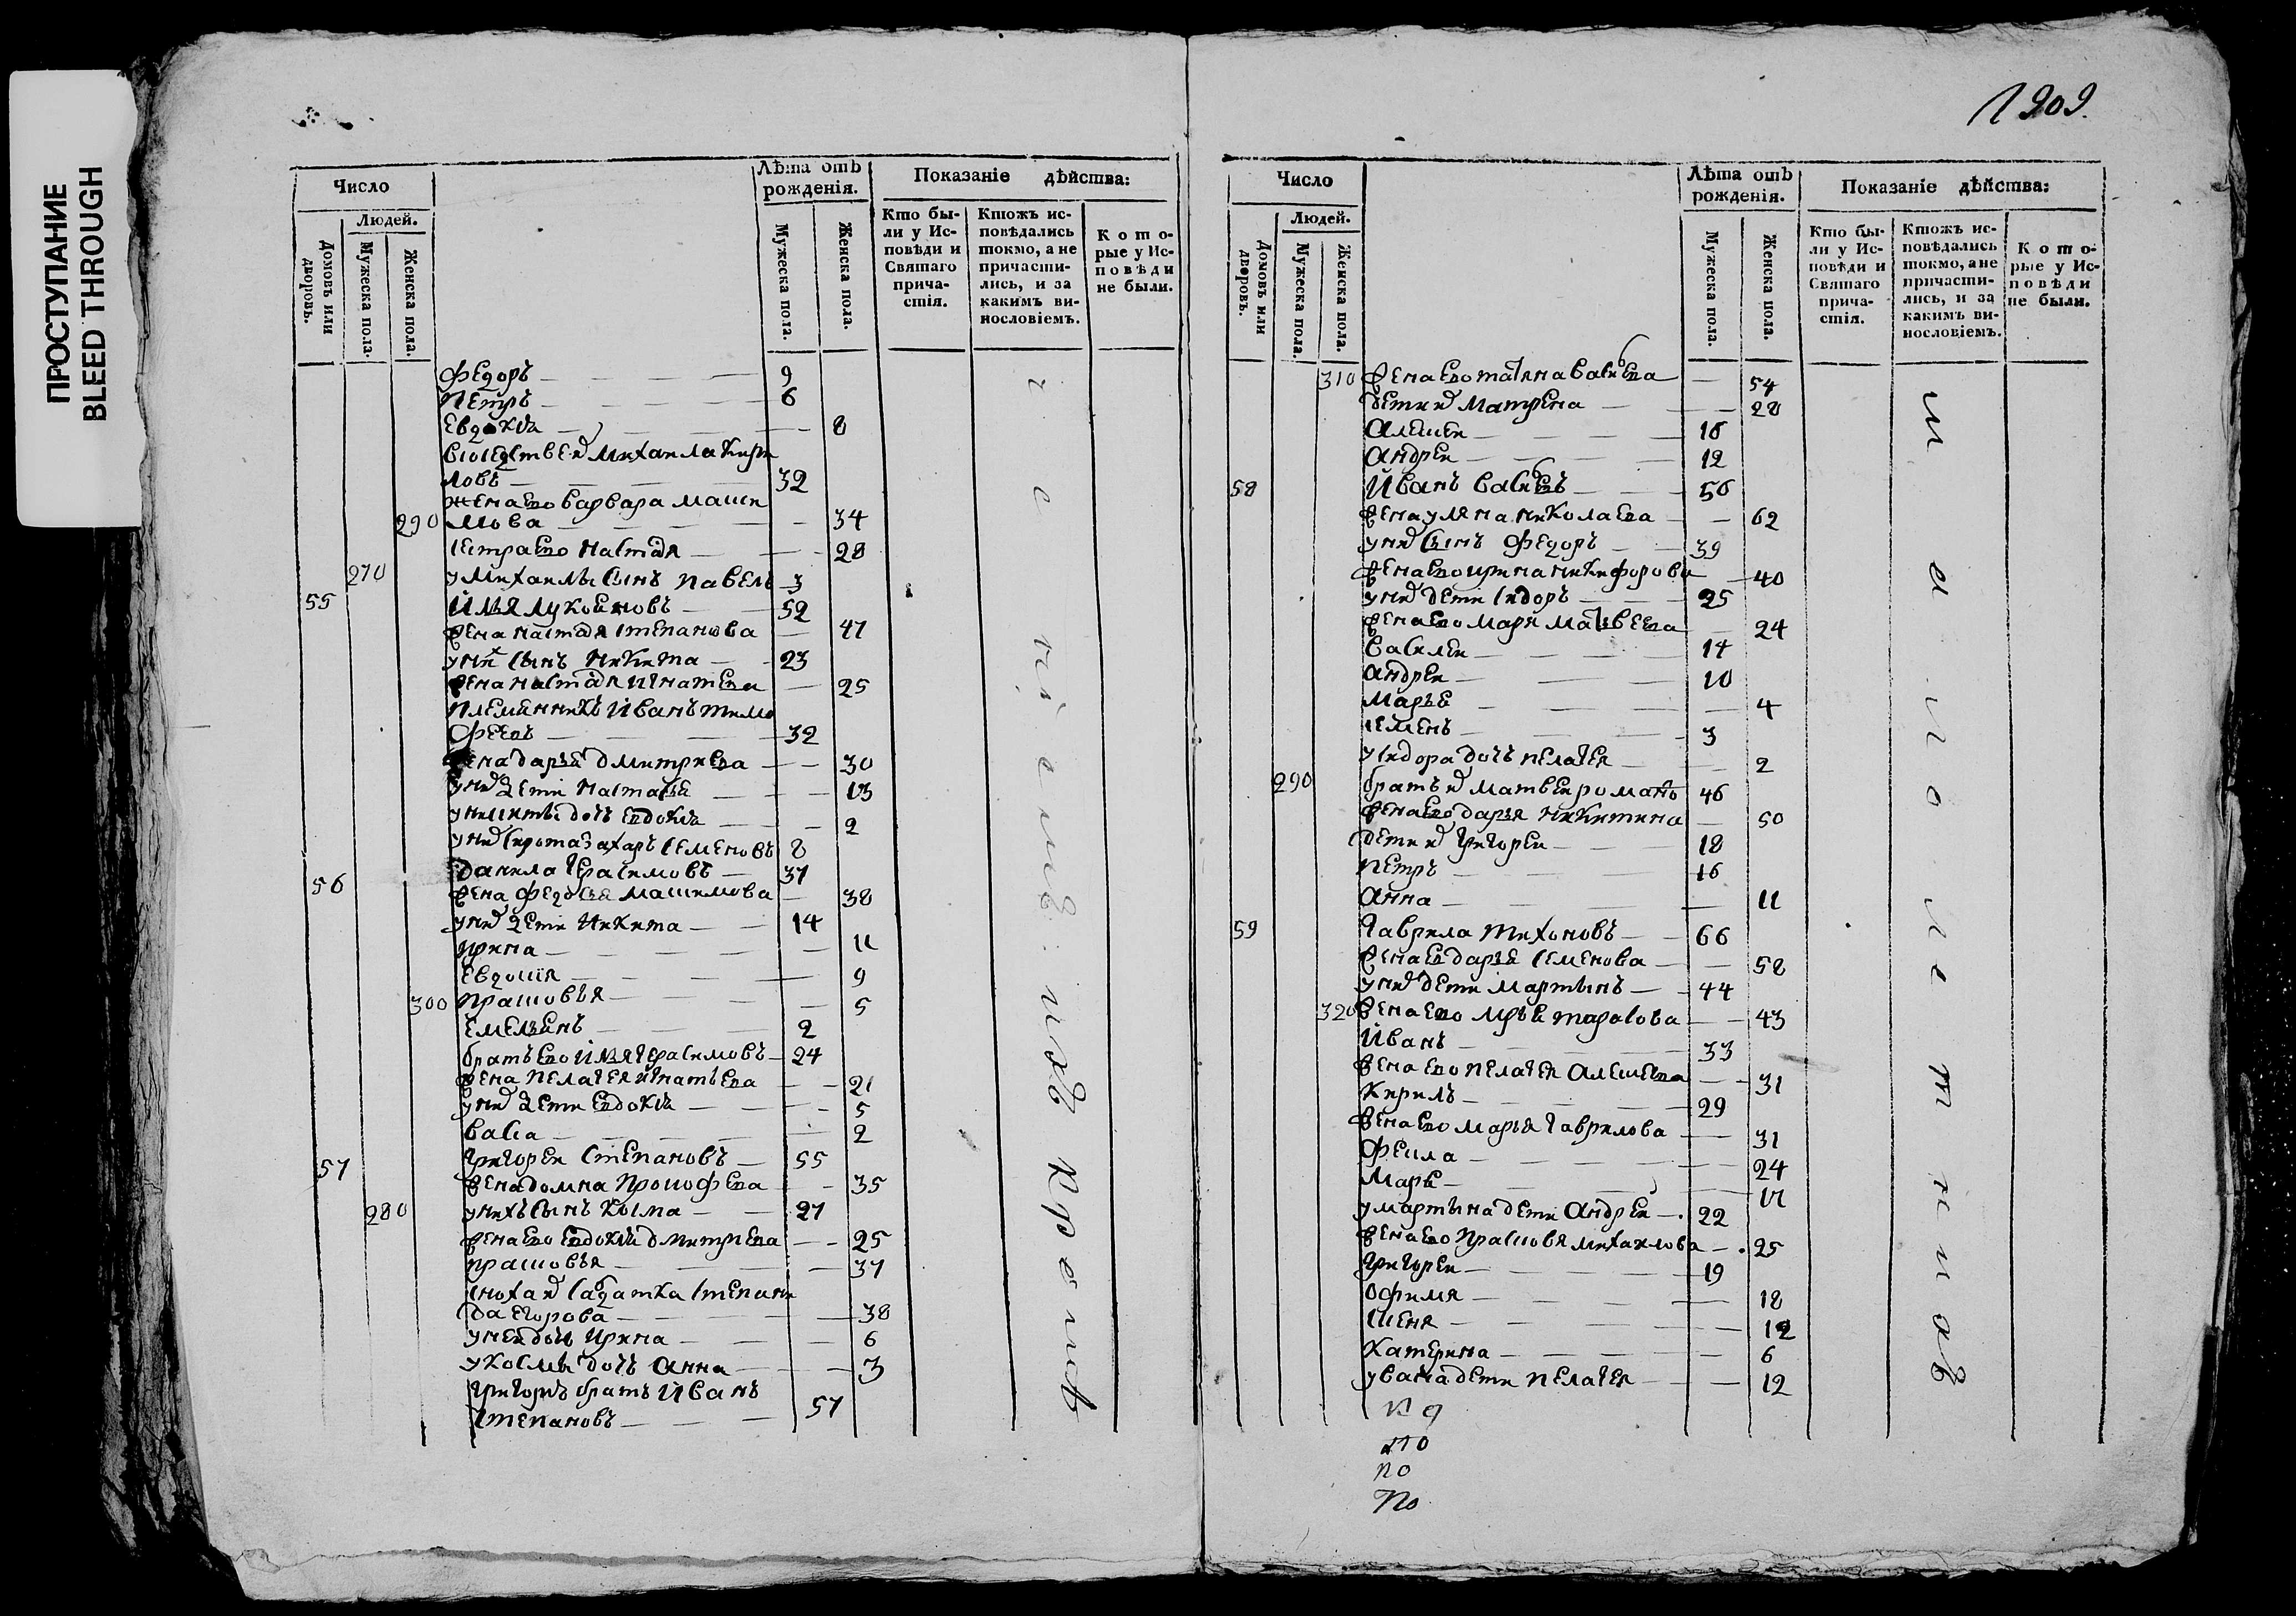 ПРОСТУПАНИЕ
BLEED THROUGH
1909.
Число
Лѣта отъ рожденія.
Показаніе дѣйства:
Людей.
Домовъ или дворовъ.
Мужеска пола.
Женска пола.
Мужеска пола.
Женска пола.
Кто бы-
ли у Ис-
повѣди и
Святаго
прича-
стія.
Ктожъ ис-
повѣдались
токмо, а не
причасти-
лись, и за
какимъ ви-
нословіемъ.
Кото-
рые у Ис-
повѣди
не были.
Федоръ 9
Петръ 6
Евдокѣа 8
32
жена ево варвара макси
290 мова 34
сестра ево настасѧ 28
270 у михаилы сынъ павелъ 3
55 Илья лукоѧновъ 52
жена настасѧ степанова 47
у них сынъ никита 23
жена настасѧ игнатева 25
племѧнникъ иванъ тимо
феевъ 32
жена дарьѧ дмитриева 30
у них дети настасьѧ 13
у никиты дочь евдокѣа 2
у них сирота захаръ семеновъ 8
56 данила герасимовъ 37
жена федосьѧ максимова 38
у них дети никита 14
ирина 11
Евдокия 9
300 прасковья 5
Емельѧнъ 2
братъ ево илья герасимовъ 24
жена пелагея игнатьева 21
у них дети евдокѣа 5
васса 2
57 григореи степановъ 55
жена домна прокофева 35
280 у нихъ сынъ косма 27
жена ево евдокѣѧ дмитриева 25
прасковья 37
сноха их салдатка степани
да егорова 38
у неи дочь ирина 6
у космы дочь анна 3
григорью братъ иванъ
степановъ 57
Число
Лѣта отъ рожденія.
Показаніе дѣйства:
Людей.
Домовъ или дворовъ.
Мужеска пола.
Женска пола.
Мужеска пола.
Женска пола.
Кто бы-
ли у Ис-
повѣди и
Святаго
прича-
стія.
Ктожъ ис-
повѣдались
токмо, а не
причасти-
лись, и за
какимъ ви-
нословіемъ.
Кото-
рые у Ис-
повѣди
не были.
310 жена ево татяна василева 54
дети их матрена 28
алексеи
андреи 12
58 Иванъ василевъ
жена уляна николаева 62
у них сынъ федоръ 39
жена ево ирина никифорова 40
у них дети сидоръ 25
жена ево маря матвеева 24
василеи 14
андреи 10
марьѧ 4
семенъ 3
у сидора дочь пелагея 2
290 братъ их матвеи романъ 46
жена ево даря никитина 50
дети их григореи 18
петръ 16
анна 11
59 гаврила тихоновъ 66
жена ево дарьѧ семенова 58
у них дети мартынъ 44
320 жена ево тарасова 43
Иванъ 33
жена ево пелагея алексеева 31
кирилъ 29
жена ево марья гаврилова 31
фекла 24
марѧ
у мартына дети андреи 22
жена ево прасковя михаилова 25
григореи 19
офимя 18
12
катерина 6
у ивана дети пелагея 12
по
по